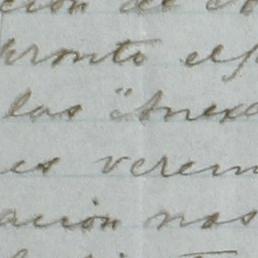 ción de
pronto el
las "Anex
es verem
ación nos